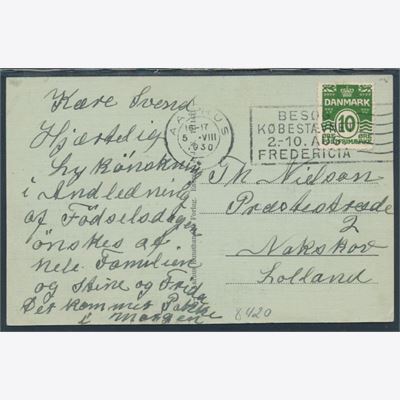 Kære Svend
Hjærtelig
Lykönskning
i Andledning
af Födselsdagen
önskes af
hele Familien
og Stine og Frida
Det kommer Pakke
i morgen
AARHUS
17
5 VIII
1930
BESØG
KØBESTÆVNET
2-10. AUG.
FREDERICIA
DANMARK
10
ØRE
Th Nielson
Præstestræde
2
Nakskov
Lolland
8420